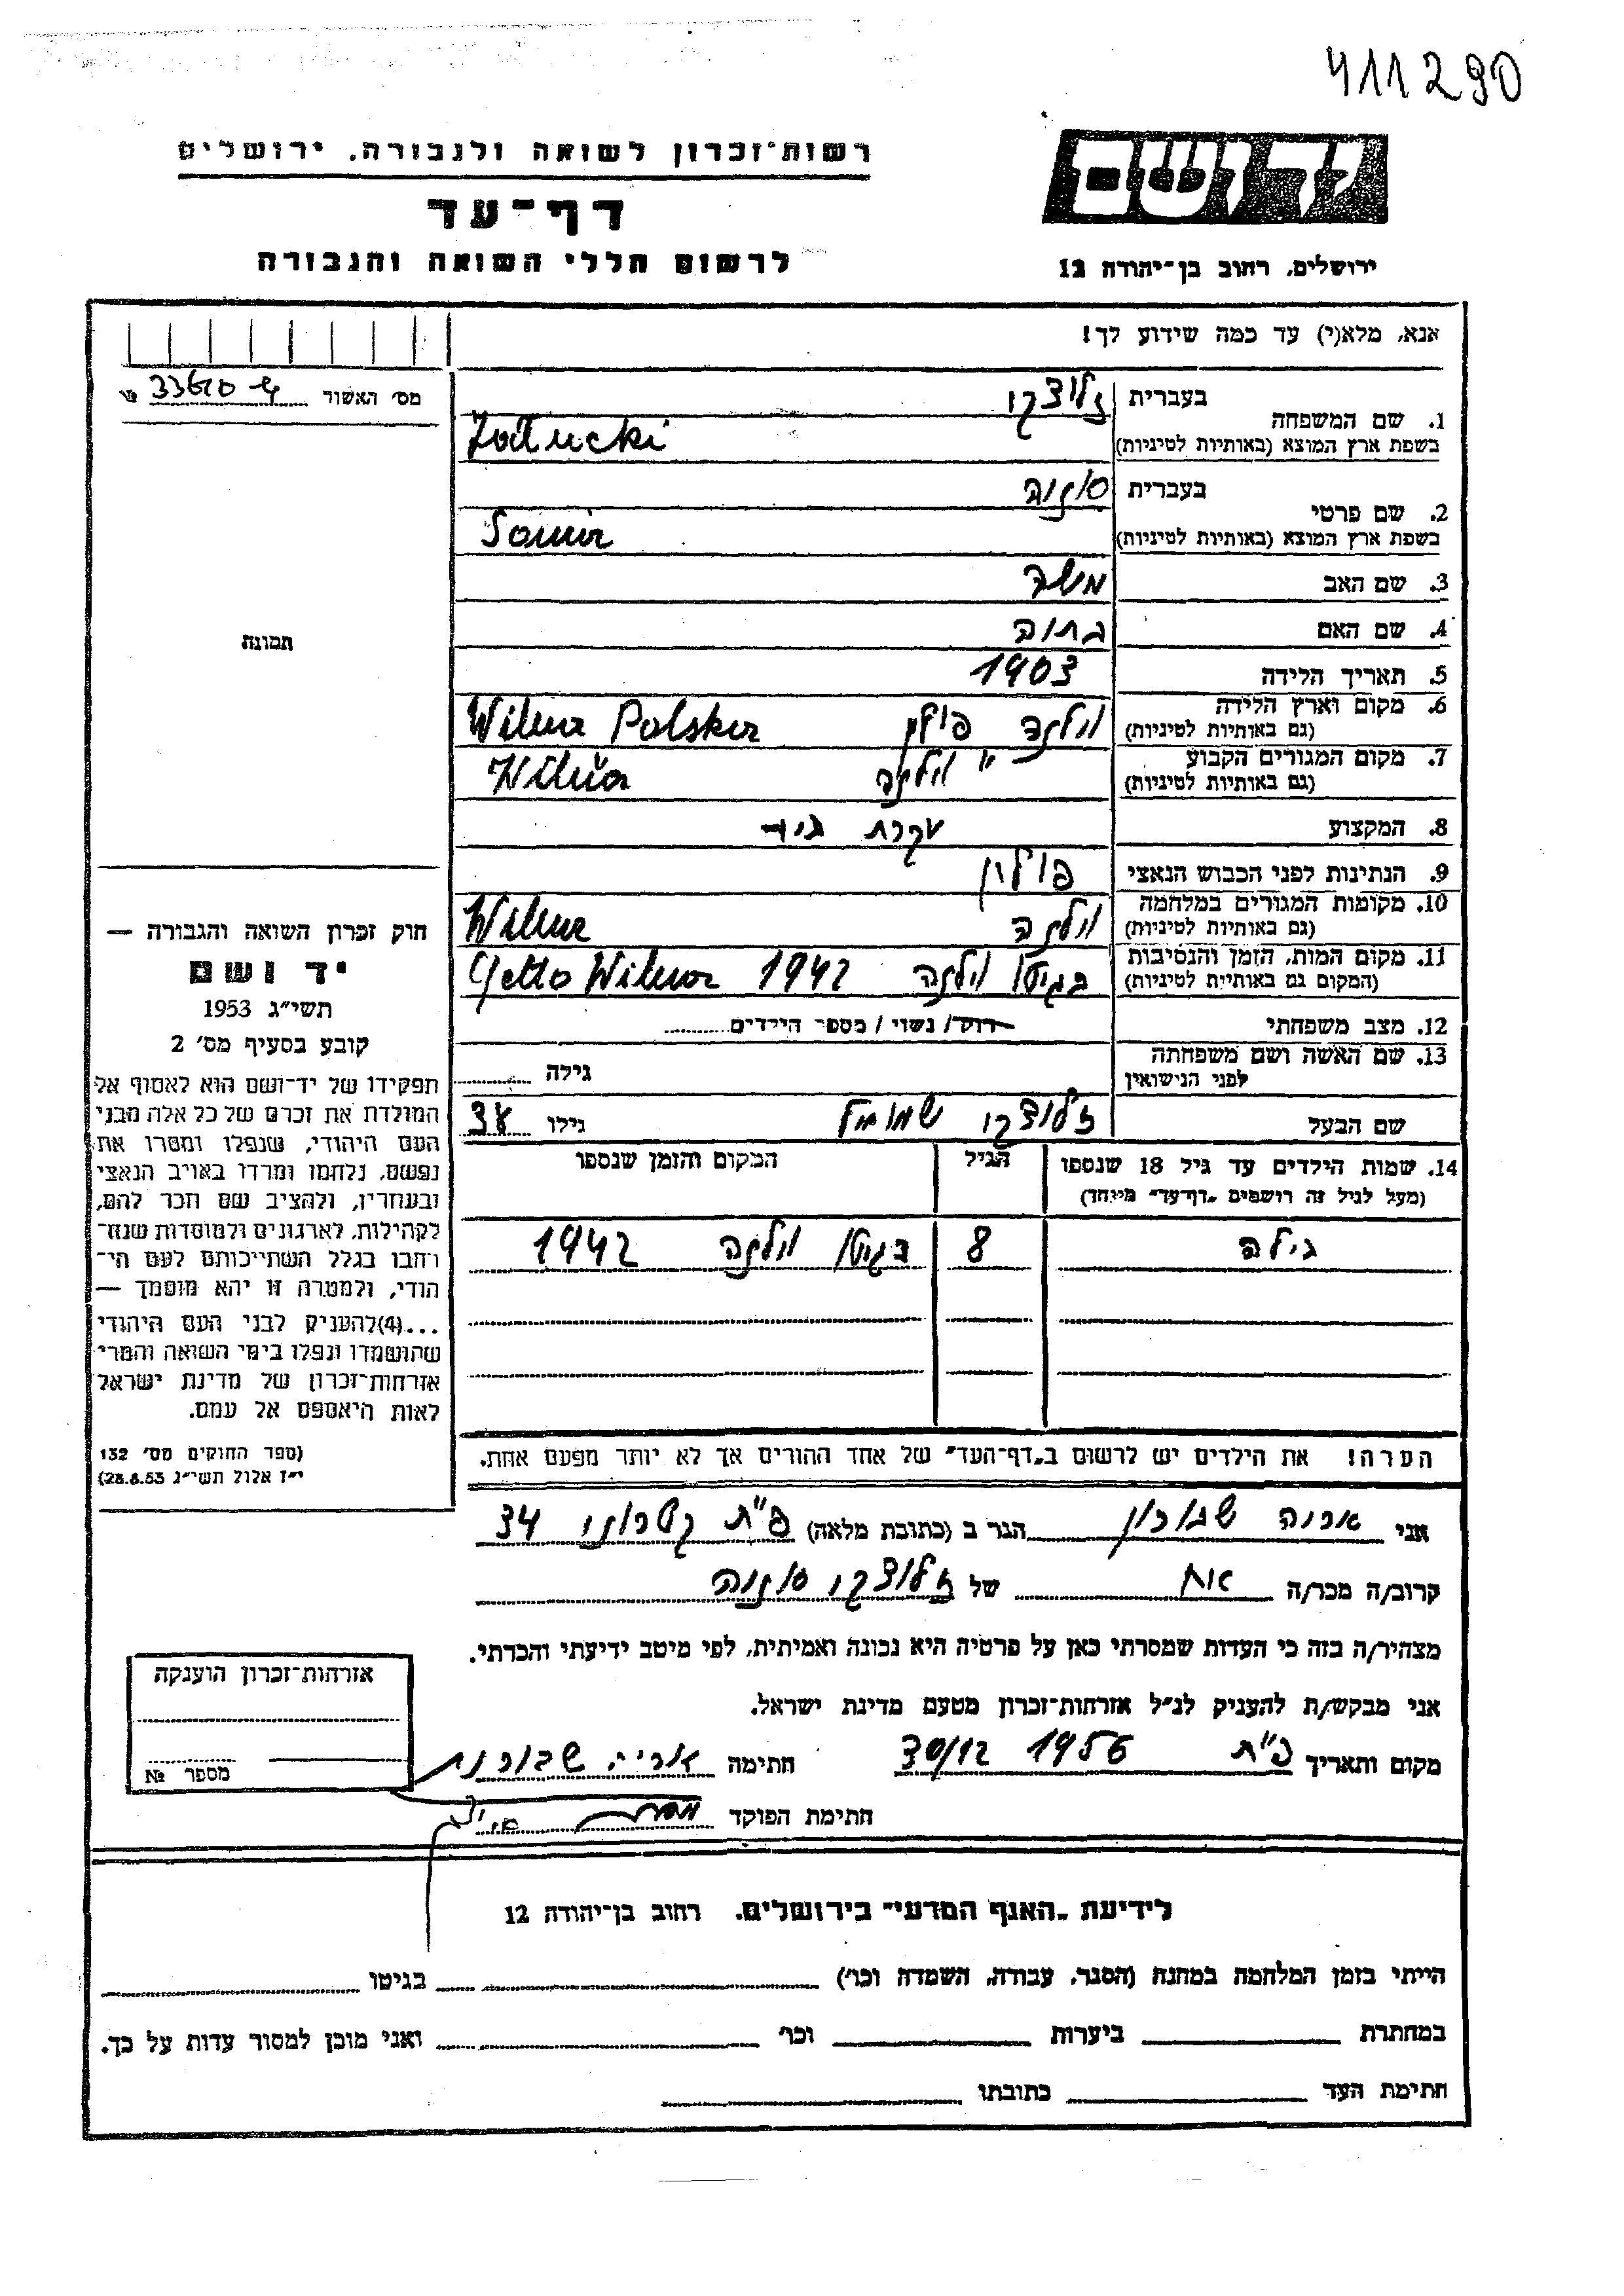 411290
רשות-זכרון לשואה ולגבורה, ירושלים
יד ושם
דף-עד
לרשום חללי השואה והגבורה
ירושלים, רחוב בן-יהודה 12
אנא, מלא(י) עד כמה שידוע לך!
מס' האשור
1. שם המשפחה בעברית זלוצקי
בשפת ארץ המוצא (באותיות לטיניות) Załucki
2. שם פרטי בעברית סוניה
בשפת ארץ המוצא (באותיות לטיניות) Sonia
3. שם האב משה
4. שם האם
5. תאריך הלידה 1903
6. מקום וארץ הלידה (גם באותיות לטיניות) וילנה פולין Wilna Polska
7. מקום המגורים הקבוע (גם באותיות לטיניות) וילנה " Wilna
8. המקצוע עקרת בית
9. הנתינות לפני הכבוש הנאצי פולין
10. מקומות המגורים במלחמה (גם באותיות לטיניות) וילנה Wilna
11. מקום המות, הזמן והנסיבות (המקום גם באותיות לטיניות) בגיטו וילנה 1942 Getto Wilna
12. מצב משפחתי רוק/ נשוי / מספר הילדים
13. שם האשה ושם משפחתה לפני הנישואין גילה
שם הבעל זלוצקי שמואל גילו 38
14. שמות הילדים עד גיל 18 שנספו הגיל המקום והזמן שנספו
(מעל לגיל זה רושמים „דף-עד" מיוחד)
גילה 8 בגיטו וילנה 1942
הערה! את הילדים יש לרשום ב„דף-העד" של אחד ההורים אך לא יותר מפעם אחת.
תמונה
חוק זכרון השואה והגבורה —
יד ושם
תשי"ג 1953
קובע בסעיף מס' 2
תפקידו של יד-ושם הוא לאסוף אל
המולדת את זכרם של כל אלה מבני
העם היהודי, שנפלו ומסרו את
נפשם, נלחמו ומרדו באויב הנאצי
ובעוזריו, ולהציב שם וזכר להם,
לקהילות, לארגונים ולמוסדות שנח-
רבו בגלל השתייכותם לעם הי-
הודי, ולמטרה זו יהא מוסמך —
...(4)להעניק לבני העם היהודי
שהושמדו ונפלו בימי השואה והמרי
אזרחות-זכרון של מדינת ישראל
לאות היאספם אל עמם.
(ספר החוקים מס' 132
י"ז אלול תשי"ג 28.8.53)
אני אריה הגר ב (כתובת מלאה) פ"ת 34
קרוב/ה מכר/ה אח של זלוצקי סוניה
מצהיר/ה בזה כי העדות שמסרתי כאן על פרטיה היא נכונה ואמיתית, לפי מיטב ידיעתי והכרתי.
אני מבקש/ת להעניק לנ"ל אזרחות-זכרון מטעם מדינת ישראל.
מקום ותאריך פ"ת 30/12 1956 חתימה אריה
חתימת הפוקד
אזרחות-זכרון הוענקה
מספר №
לידיעת „האגף המדעי" בירושלים, רחוב בן-יהודה 12
הייתי בזמן המלחמה במחנה (הסגר, עבודה, השמדה וכו') בגיטו
במחתרת ביערות וכו' ואני מוכן למסור עדות על כך.
חתימת העד כתובתו